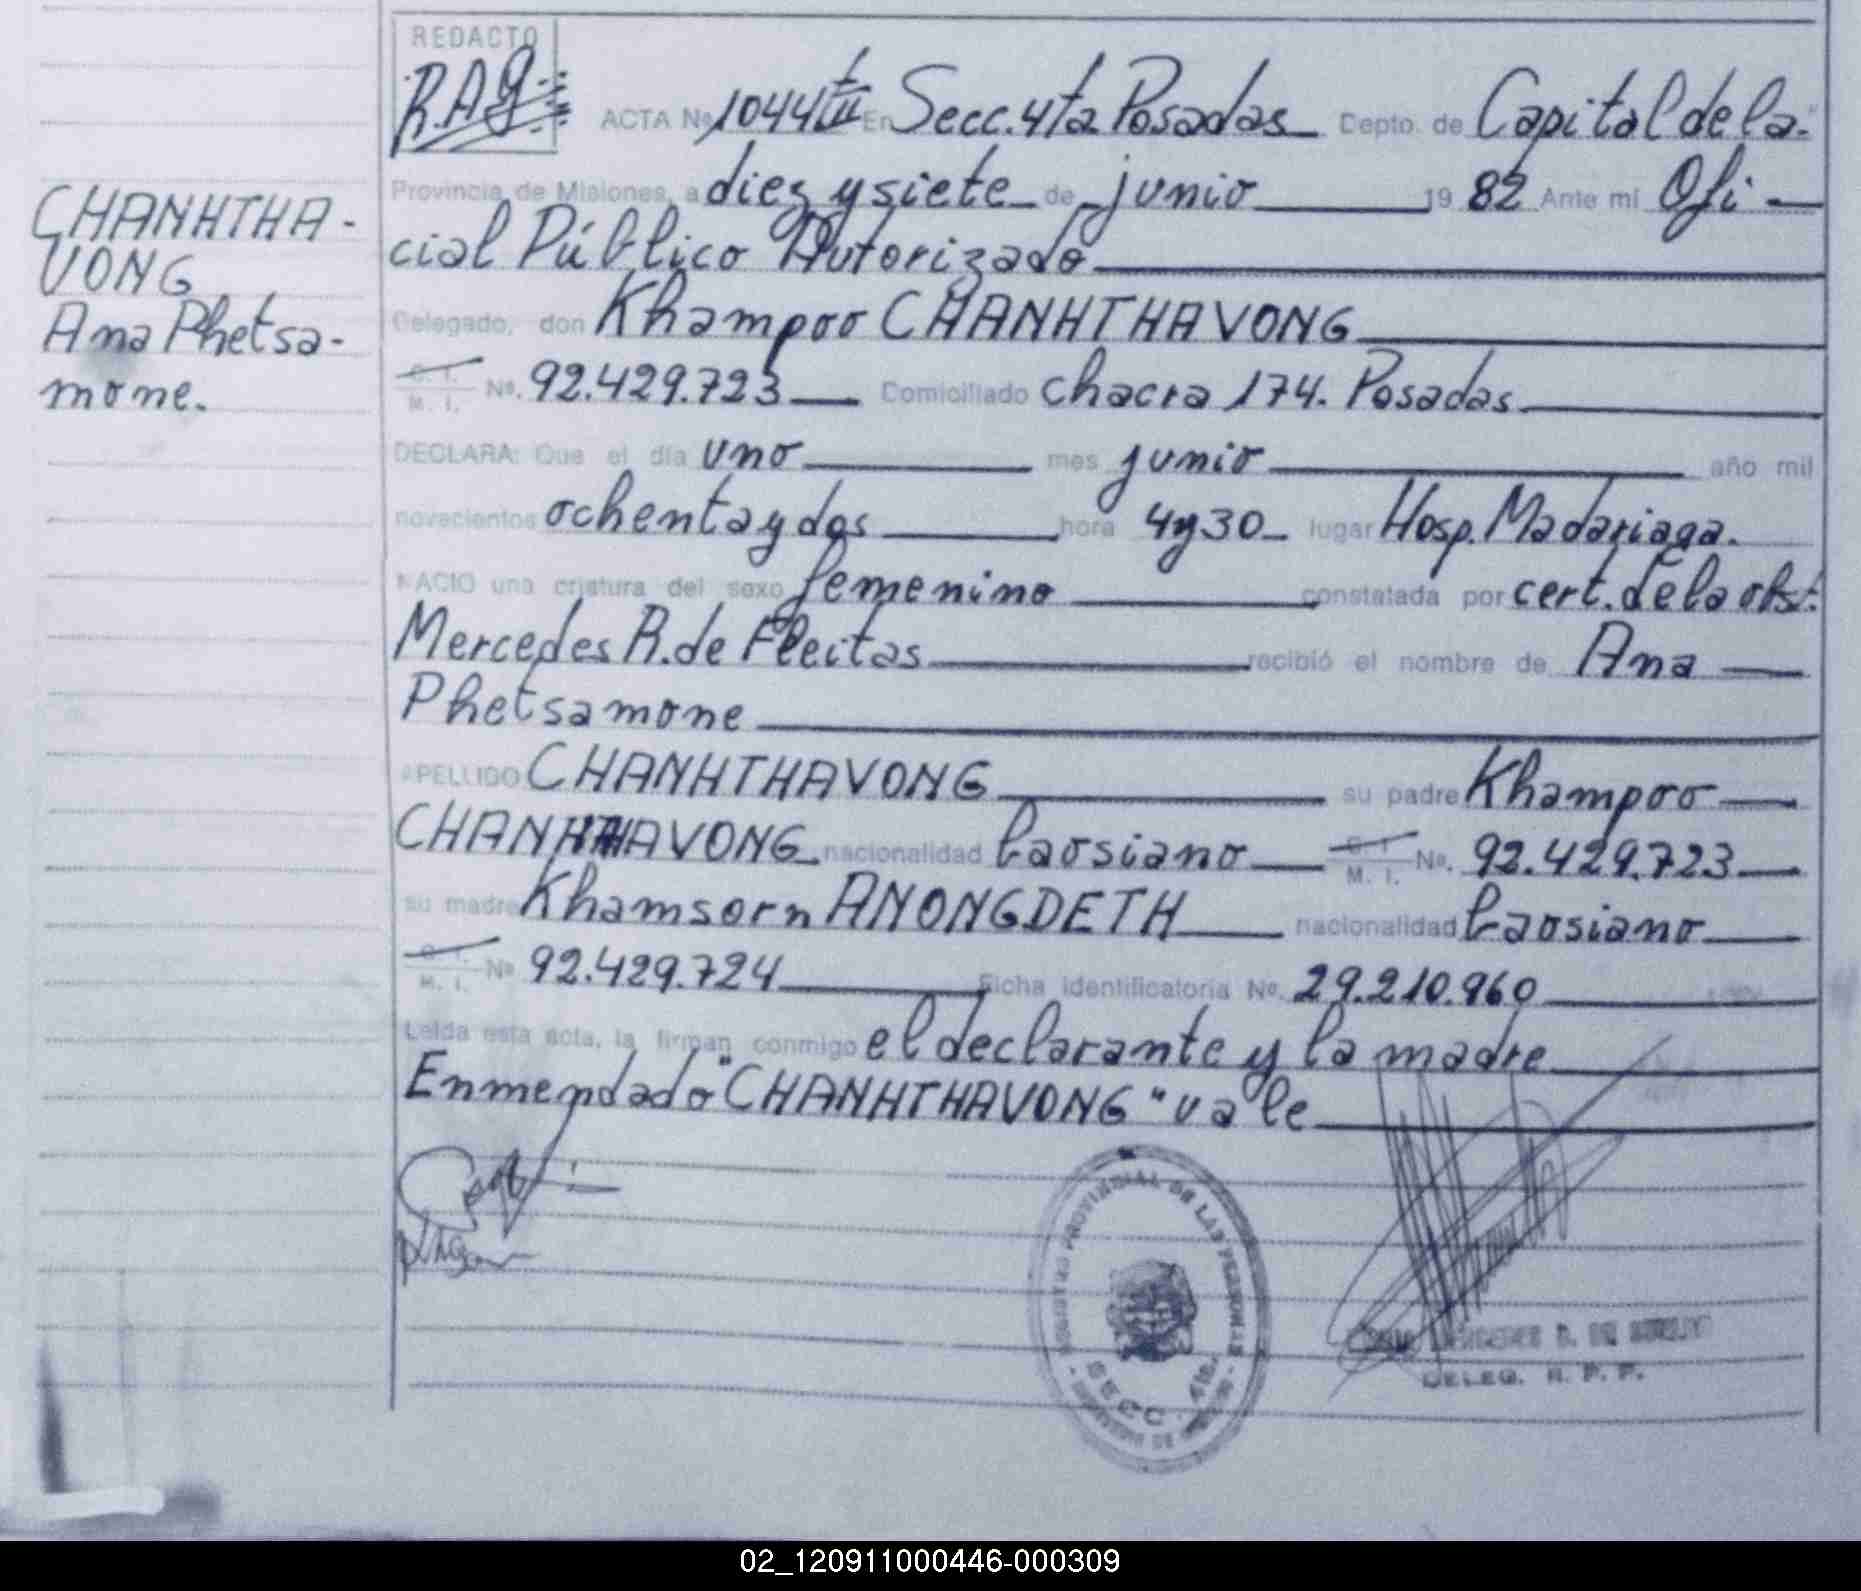 REDACTO
R.A.G.
CHANHTHA-
VONG
Ana Phetsa-
mone.
ACTA Nº 1044 En Secc. 4ta Posadas Depto. de Capital de la
Provincia de Misiones, a diez y siete de junio 1982 Ante mí Ofi-
cial Público Autorizado
Delegado, don Khampoo CHANHTHAVONG
C. I.
M. I. Nº. 92.429.723 Domiciliado chacra 174. Posadas
DECLARA: Que el día uno mes junio año mil
novecientos ochenta y dos hora 4 y 30 lugar Hosp. Madariaga.
NACIO una criatura del sexo femenino constatada por cert. de la obst.
Mercedes R. de Fleitas recibió el nombre de Ana
Phetsamone
APELLIDO CHANHTHAVONG su padre Khampoo
CHANHTHAVONG nacionalidad laosiano C. I. M. I. Nº. 92.429.723
su madre Khamsorn ANONGDETH nacionalidad laosiano
C. I.
M. I. Nº 92.429.724 Ficha identificatoria Nº. 29.210.960
Leída esta acta, la firman conmigo el declarante y la madre
Enmendado "CHANHTHAVONG" vale
REGISTRO PROVINCIAL DE LAS PERSONAS
SECC. 4ta.
DELEG. R. P. P.
02_120911000446-000309